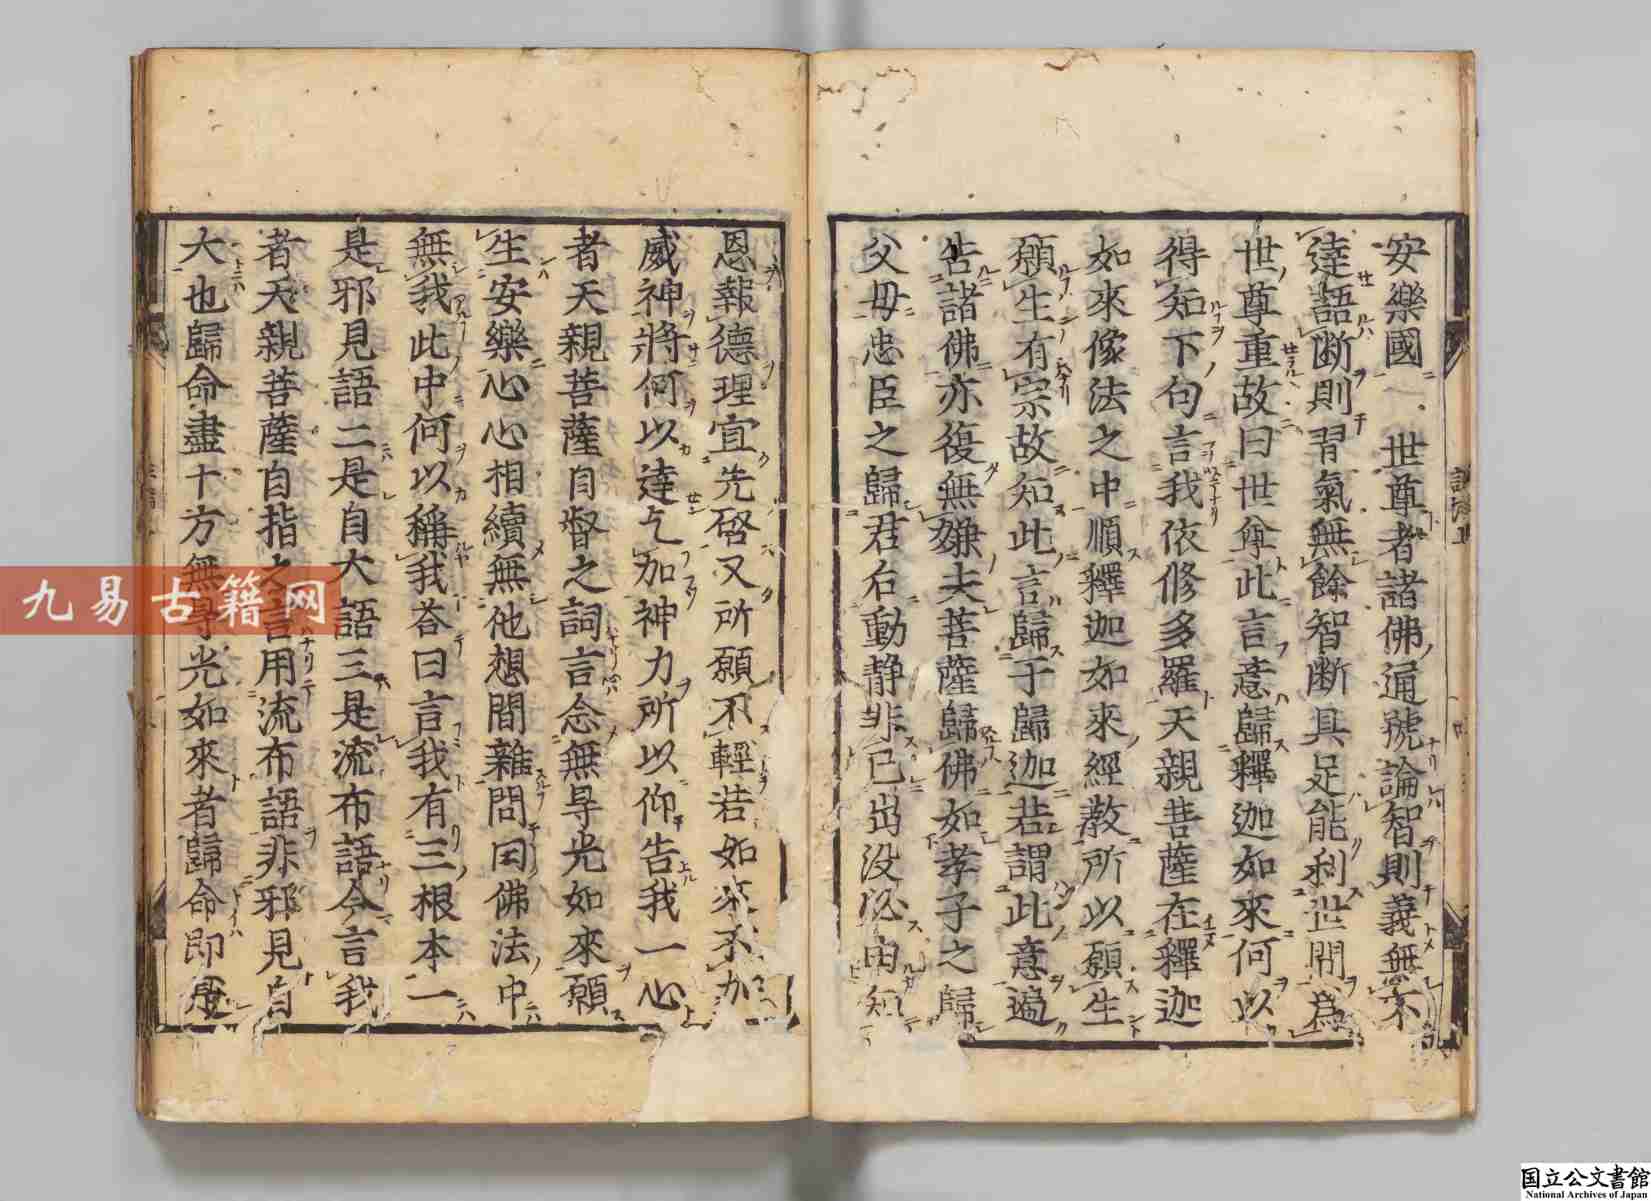 安樂國　世尊者諸佛通號論智則義無不
達語斷則習氣無餘智斷具足能利世間爲
世尊重故曰世尊此言意歸釋迦如來何以
得知下句言我依修多羅天親菩薩在釋迦
如來像法之中順釋迦如來經教所以願生
願生有宗故知此言歸于釋迦若謂此意遍
告諸佛亦復無嫌夫菩薩歸佛如孝子之歸
父母忠臣之歸君后動靜非已出沒必由知
恩報德理宜先啓又所願不輕若如來不加
威神將何以達乞加神力所以仰告我一心
者天親菩薩自督之詞言念無导光如來願
生安樂心心相續無他想間雜問曰佛法中
無我此中何以稱我荅曰言我有三根本一
是邪見語二是自大語三是流布語今言我
者天親菩薩自指之言用流布語非邪見自
大也歸命盡十方無导光如來者歸命即是
九易古籍网
国立公文書館
National Archives of Japan